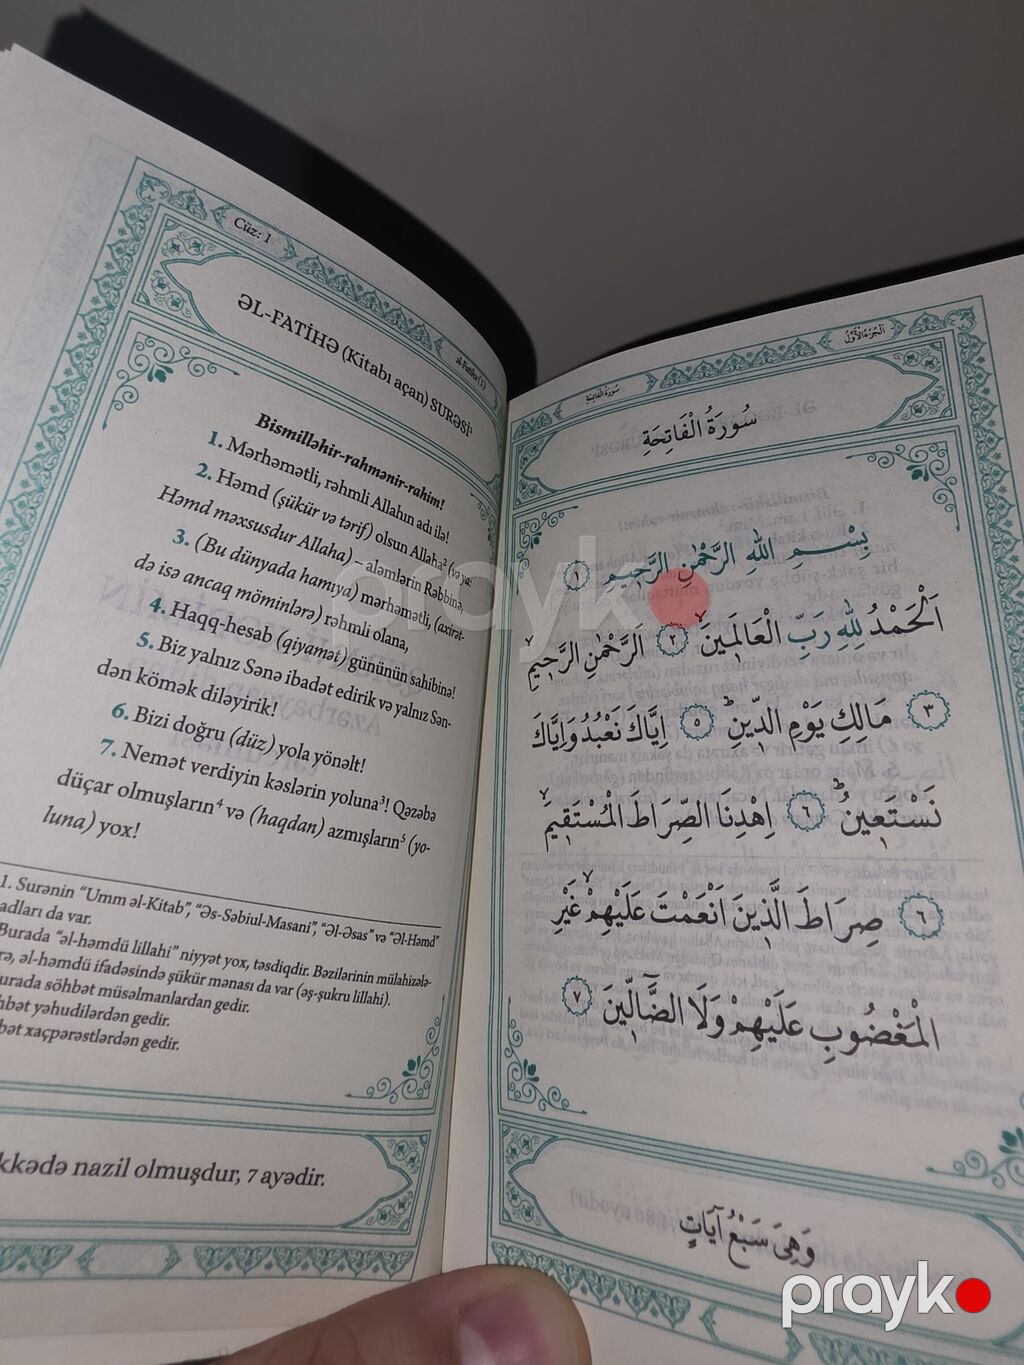 Cüz: 1
əl-Fatihə (1)
ƏL-FATİHƏ (Kitabı açan) SURƏSİ¹
Bismilləhir-rahmənir-rahim!
1. Mərhəmətli, rəhmli Allahın adı ilə!
2. Həmd (şükür və tərif) olsun Allaha² (və ya:
Həmd məxsusdur Allaha) – aləmlərin Rəbbinə,
3. (Bu dünyada hamıya) mərhəmətli, (axirət-
də isə ancaq möminlərə) rəhmli olana,
4. Haqq-hesab (qiyamət) gününün sahibinə!
5. Biz yalnız Sənə ibadət edirik və yalnız Sən-
dən kömək diləyirik!
6. Bizi doğru (düz) yola yönəlt!
7. Nemət verdiyin kəslərin yoluna³! Qəzəbə
düçar olmuşların⁴ və (haqdan) azmışların⁵ (yo-
luna) yox!
1. Surənin “Umm əl-Kitab”, “Əs-Səbiul-Masani”, “Əl-Əsas” və “Əl-Həmd”
adları da var.
Burada “əl-həmdü lillahi” niyyət yox, təsdiqdir. Bəzilərinin mülahizələ-
rə, əl-həmdü ifadəsində şükür mənası da var (əş-şukru lillahi).
urada söhbət müsəlmanlardan gedir.
hbət yəhudilərdən gedir.
bət xaçpərəstlərdən gedir.
kkədə nazil olmuşdur, 7 ayədir.
اَلْجُزْءُ الْاَوَّلُ
سُورَةُ الْفَاتِحَةِ
سُورَةُ الْفَاتِحَةِ
بِسْمِ اللهِ الرَّحْمٰنِ الرَّحِيمِ ١
اَلْحَمْدُ لِلّٰهِ رَبِّ الْعَالَمِينَ ٢ اَلرَّحْمٰنِ الرَّحِيمِ
٣ مَالِكِ يَوْمِ الدِّينِ ٥ اِيَّاكَ نَعْبُدُ وَاِيَّاكَ
نَسْتَعِينُ ٦ اِهْدِنَا الصِّرَاطَ الْمُسْتَقِيمَ
٦ صِرَاطَ الَّذِينَ اَنْعَمْتَ عَلَيْهِمْ غَيْرِ
الْمَغْضُوبِ عَلَيْهِمْ وَلَا الضَّالِّينَ ٧
وَهِىَ سَبْعُ آيَاتٍ
prayko
prayko